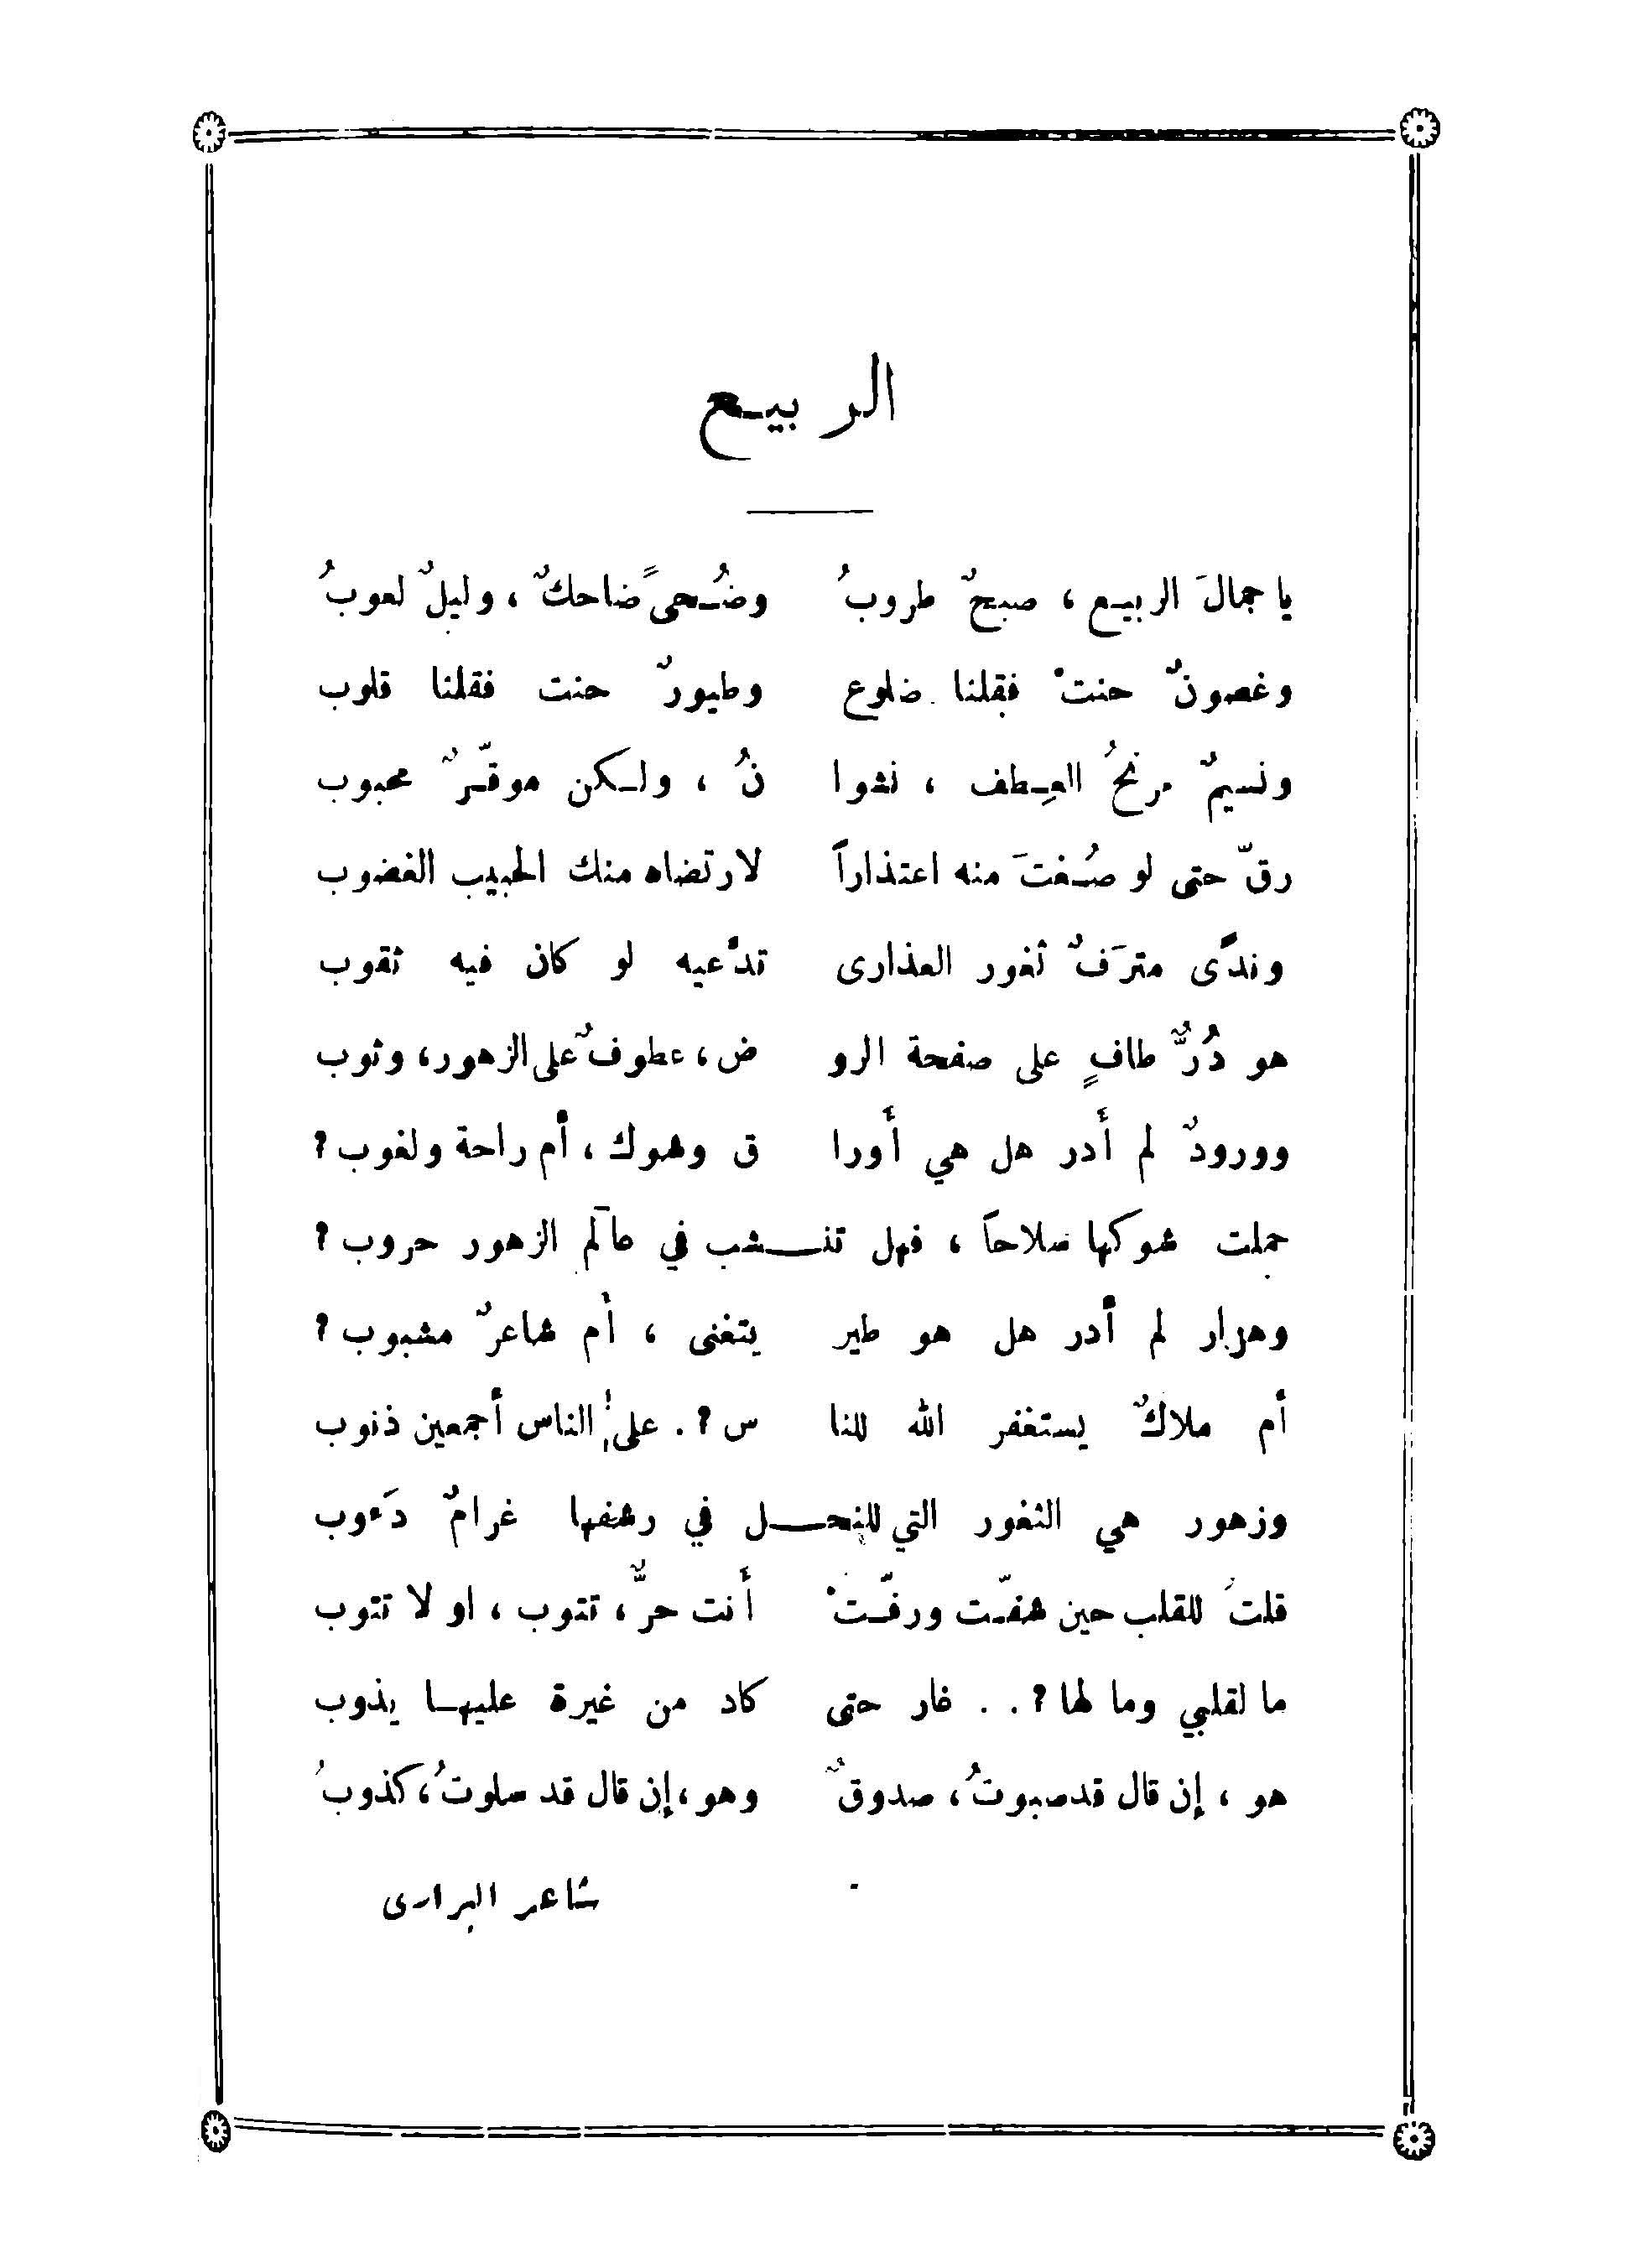 الربيع
يا جمالَ الربيع ، صبحٌ طروبُ وضُحىً ضاحكٌ ، وليلٌ لعوبُ
وغصونٌ حنتْ فقلنا ضلوع وطيورٌ حنت فقلنا قلوب
ونسيمٌ مرنحُ العِطف ، نشوا نُ ، ولكن موقّرٌ محبوب
رقّ حتى لو صُغتَ منه اعتذاراً لارتضاه منك الحبيب الغضوب
وندًى مترَفٌ ثغور العذارى تدّعيه لو كان فيه ثقوب
هو دُرٌّ طافٍ على صفحة الرو ض ، عطوفٌ على الزهور ، وثوب
وورودٌ لم أدر هل هي أورا ق وشوك ، أم راحة ولغوب ؟
حملت شوكها سلاحاً ، فهل تنشب في عالَم الزهور حروب ؟
وهزار لم أدر هل هو طير يتغنى ، أم شاعرٌ مشبوب ؟
أم ملاكٌ يستغفر الله للنا س ؟ . على الناس أجمعين ذنوب
وزهور هي الثغور التي للنحل في رشفها غرامٌ دَءوب
قلتُ للقلب حين شفّت ورفّتْ أنت حرٌّ ، تتوب ، او لا تتوب
ما لقلبي وما لها ؟ . . غار حتى كاد من غيرة عليها يذوب
هو ، إن قال قد صبوتُ ، صدوقٌ وهو ، إن قال قد سلوتُ ، كذوبُ
شاعر البرارى